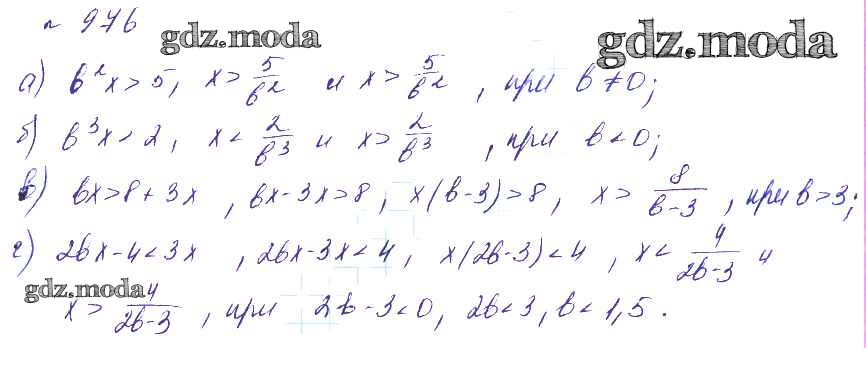 № 976
gdz.moda
gdz.moda
а) b²x > 5, x > 5/b² и x > 5/b², при b ≠ 0;
б) b³x < 2, x < 2/b³ и x > 2/b³, при b < 0;
в) bx > 8 + 3x, bx - 3x > 8, x(b-3) > 8, x > 8/(b-3), при b > 3;
г) 2bx - 4 < 3x, 2bx - 3x < 4, x(2b-3) < 4, x < 4/(2b-3) и
gdz.moda
x > 4/(2b-3), при 2b - 3 < 0, 2b < 3, b < 1,5.